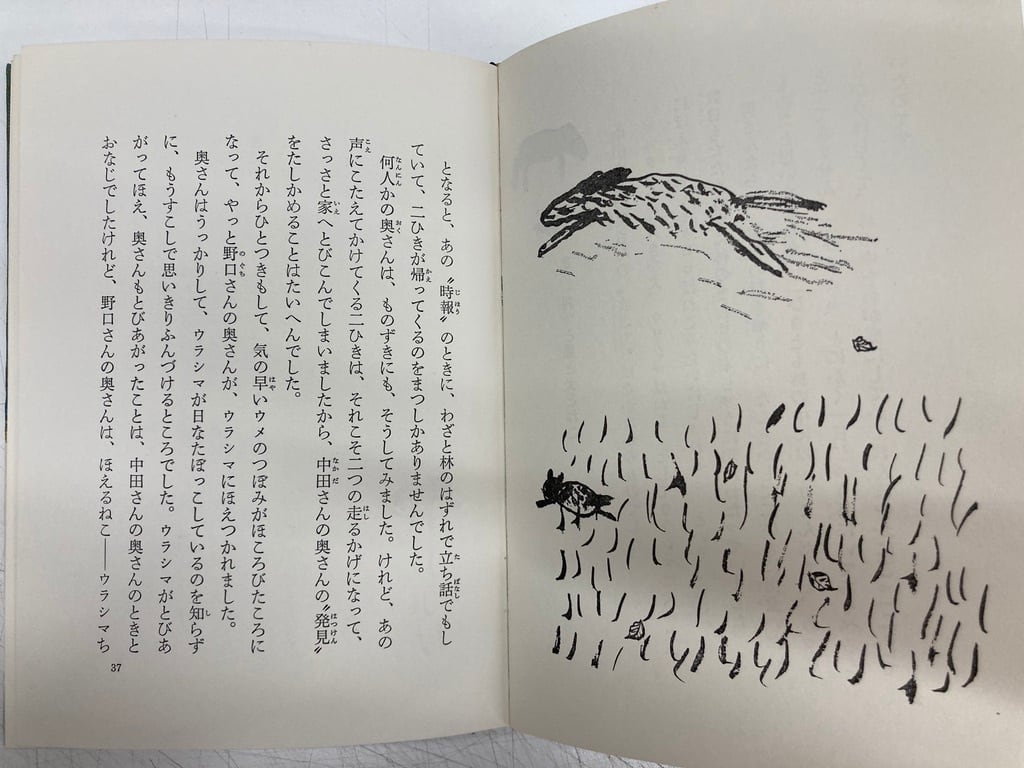 となると、あの〝時報〟のときに、わざと林のはずれで立ち話でもし
ていて、二ひきが帰ってくるのをまつしかありませんでした。
何人かの奥さんは、ものずきにも、そうしてみました。けれど、あの
声にこたえてかけてくる二ひきは、それこそ二つの走るかげになって、
さっさと家へとびこんでしまいましたから、中田さんの奥さんの〝発見〟
をたしかめることはたいへんでした。
それからひとつきもして、気の早いウメのつぼみがほころびたころに
なって、やっと野口さんの奥さんが、ウラシマにほえつかれました。
奥さんはうっかりして、ウラシマが日なたぼっこしているのを知らず
に、もうすこしで思いきりふんづけるところでした。ウラシマがとびあ
がってほえ、奥さんもとびあがったことは、中田さんの奥さんのときと
おなじでしたけれど、野口さんの奥さんは、ほえるねこ――ウラシマち
37